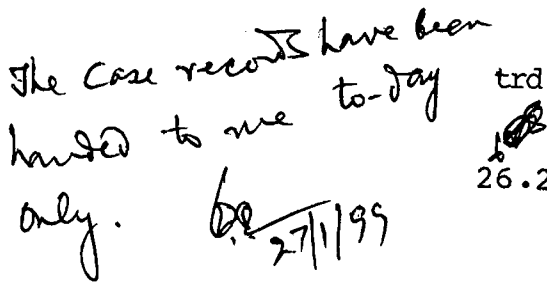 The Case records have been
handed to me to-day
only.
27/1/99
trd
26.2